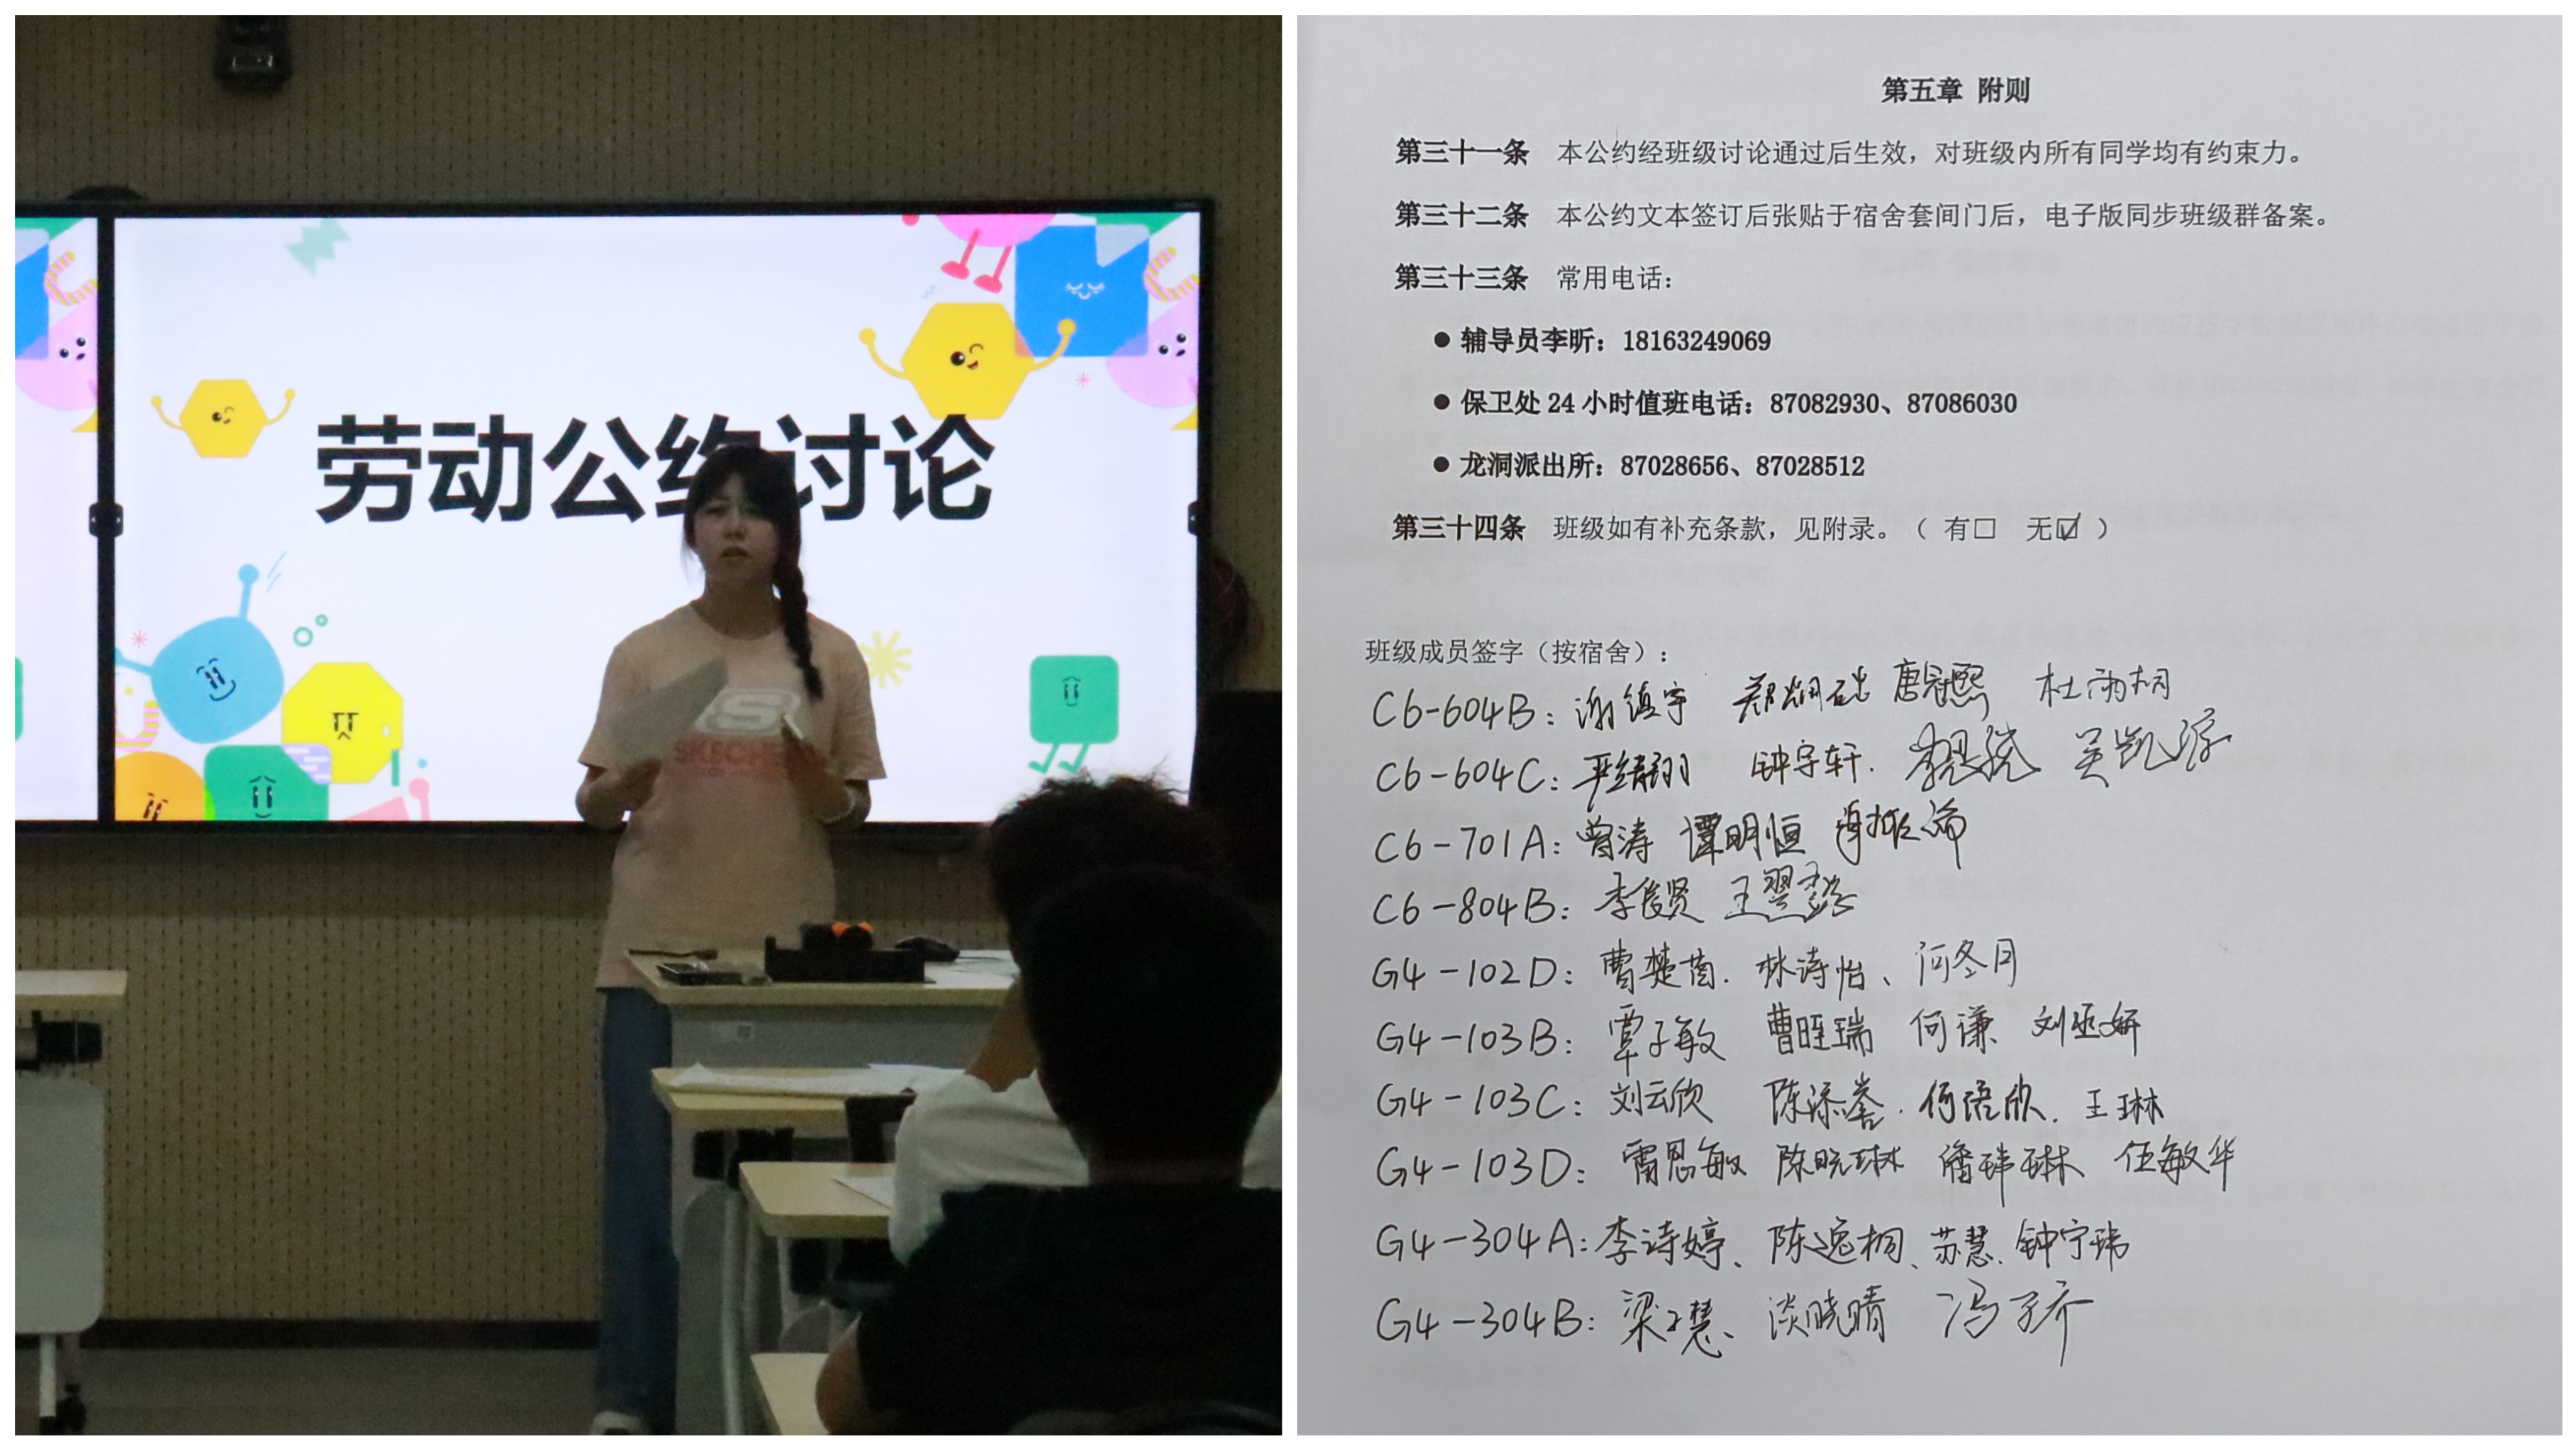 劳动公约讨论
SKECHE
第五章 附则
第三十一条 本公约经班级讨论通过后生效，对班级内所有同学均有约束力。
第三十二条 本公约文本签订后张贴于宿舍套间门后，电子版同步班级群备案。
第三十三条 常用电话：
● 辅导员李昕：18163249069
● 保卫处 24 小时值班电话：87082930、87086030
● 龙洞派出所：87028656、87028512
第三十四条 班级如有补充条款，见附录。（ 有□ 无☑ ）
班级成员签字（按宿舍）：
C6-604B：谢镇宇 唐冠熙 杜雨桐
C6-604C：钟宇轩. 吴凯淳
C6-701A：曾涛 谭明恒
C6-804B：李俊贤
G4-102D：曹楚茵. 林诗怡、何冬月
G4-103B：覃子敏 曹旺瑞 何谦 刘丞妍
G4-103C：刘云欣 何语欣. 王琳
G4-103D：雷思敏 陈晓琳 潘玮琳 伍敏华
G4-304A：李诗婷、陈逸桐、苏慧. 钟宁玮
G4-304B：梁子慧、淡晓晴 冯子乔